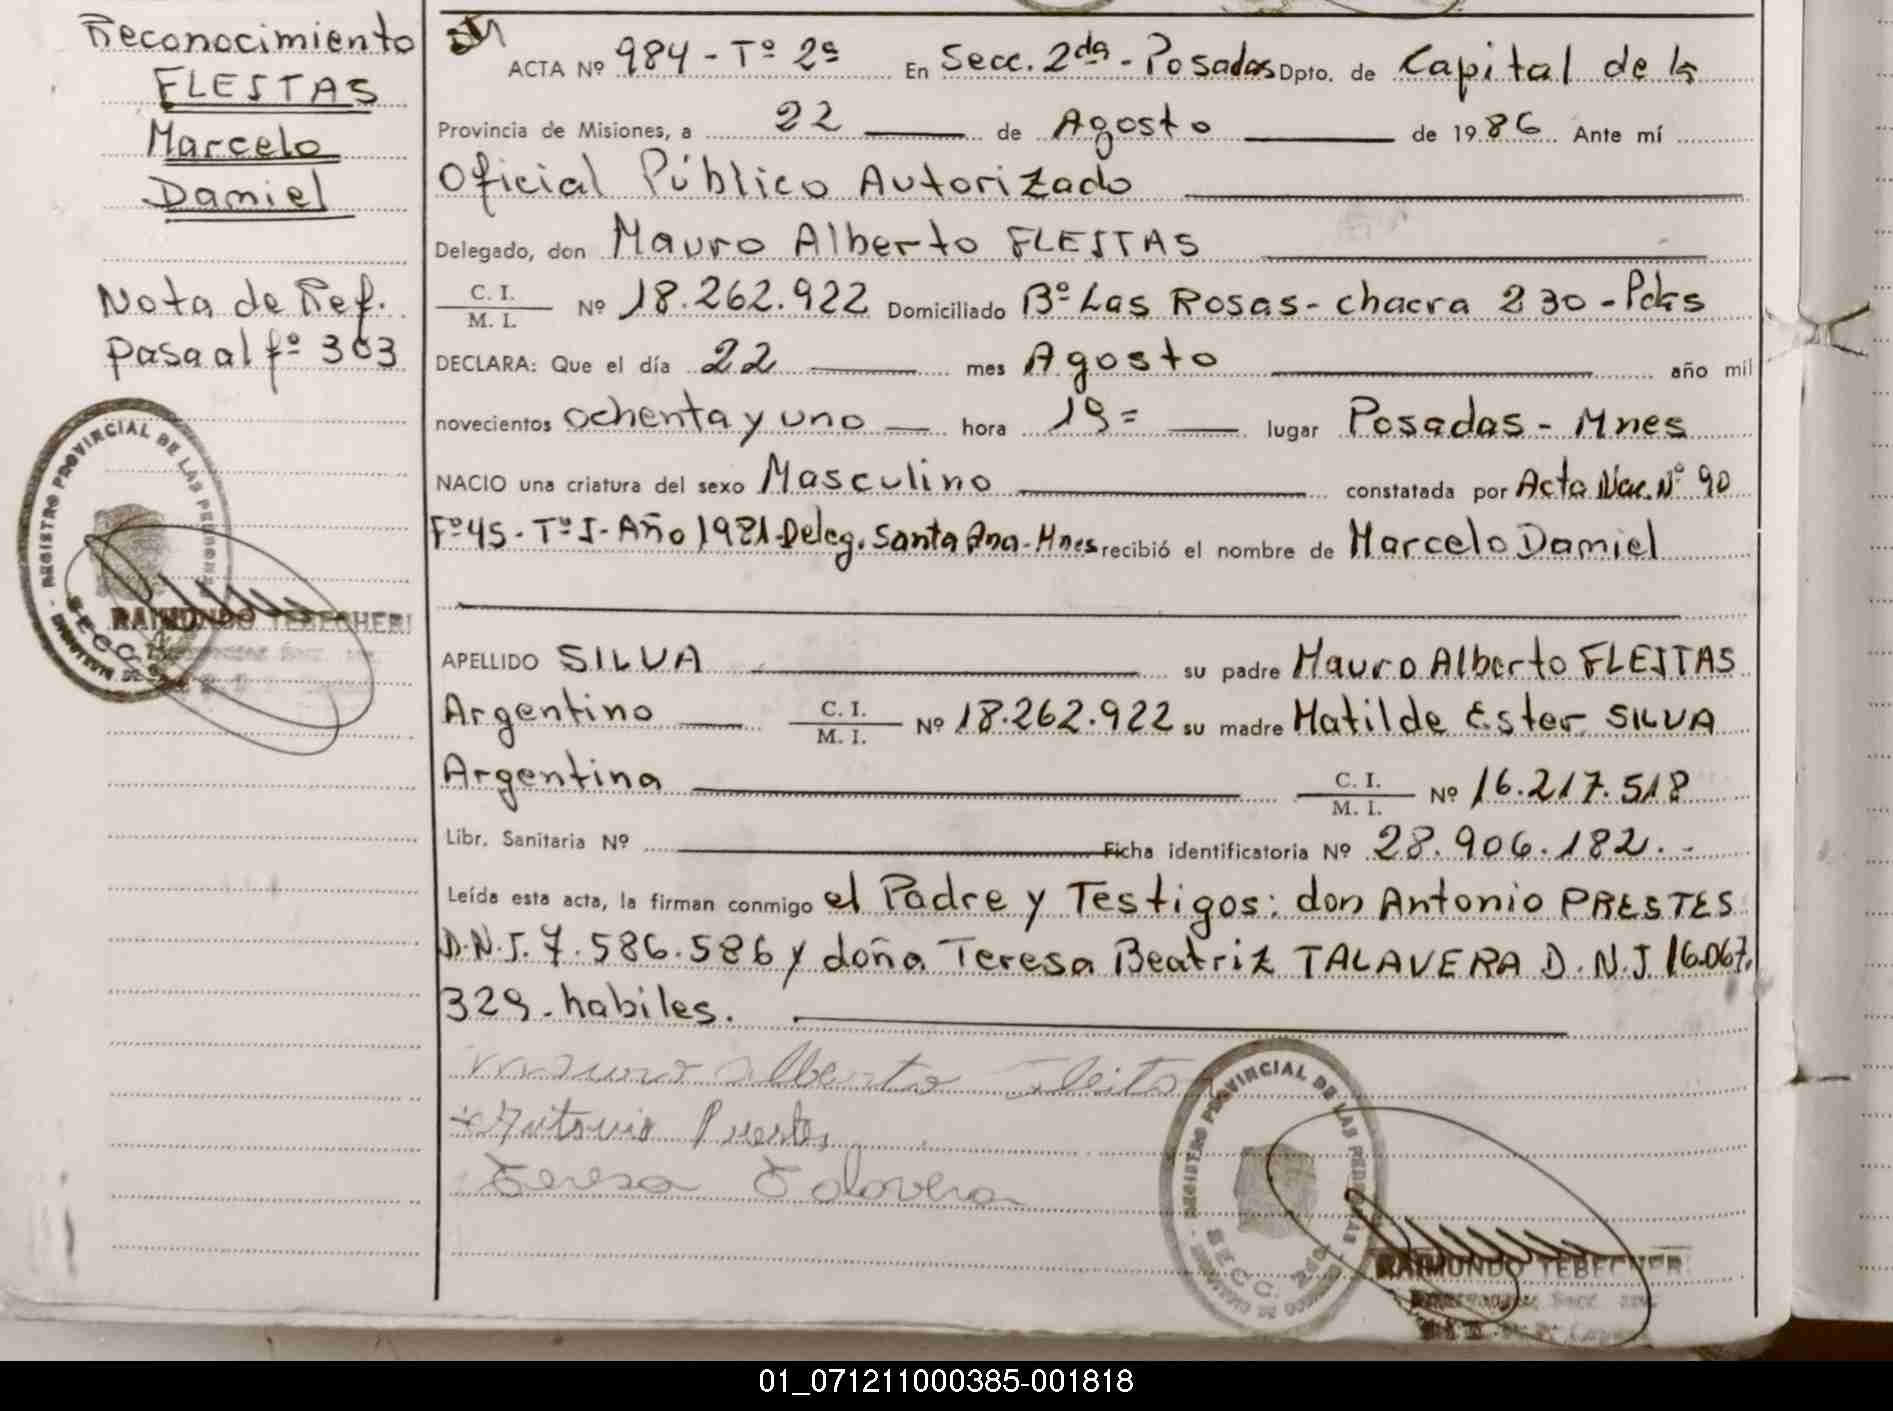 Reconocimiento
FLEITAS
Marcelo
Daniel
Nota de Ref.
Pasa al fº 303
REGISTRO PROVINCIAL DE LAS PERSONAS
SECC.
RAIMUNDO TEBECHERI
ACTA Nº 984 - Tº 2º En Secc. 2da - Posadas Dpto. de Capital de la
Provincia de Misiones, a 22 de Agosto de 1986 Ante mí
Oficial Público Autorizado
Delegado, don Mauro Alberto FLEITAS
C. I. / M. I. Nº 18.262.922 Domiciliado Bº Las Rosas - chacra 230 - Pdas
DECLARA: Que el día 22 mes Agosto año mil
novecientos ochenta y uno hora 19= lugar Posadas - Mnes
NACIO una criatura del sexo Masculino constatada por Acta Nac. Nº 90
Fº 45 - Tº I - Año 1981 - Deleg. Santa Ana - Mnes recibió el nombre de Marcelo Daniel
APELLIDO SILVA su padre Mauro Alberto FLEITAS
Argentino C. I. / M. I. Nº 18.262.922 su madre Matilde Ester SILVA
Argentina C. I. / M. I. Nº 16.217.518
Libr. Sanitaria Nº Ficha identificatoria Nº 28.906.182.-
Leída esta acta, la firman conmigo el Padre y Testigos: don Antonio PRESTES
D.N.I. 7.586.586 y doña Teresa Beatriz TALAVERA D.N.I 16.067.
329 - habiles.
Mauro Alberto Fleita
Antonio Prestes
Teresa Talavera
REGISTRO PROVINCIAL DE LAS PERSONAS
SECC. 2da
RAIMUNDO TEBECHERI
01_071211000385-001818